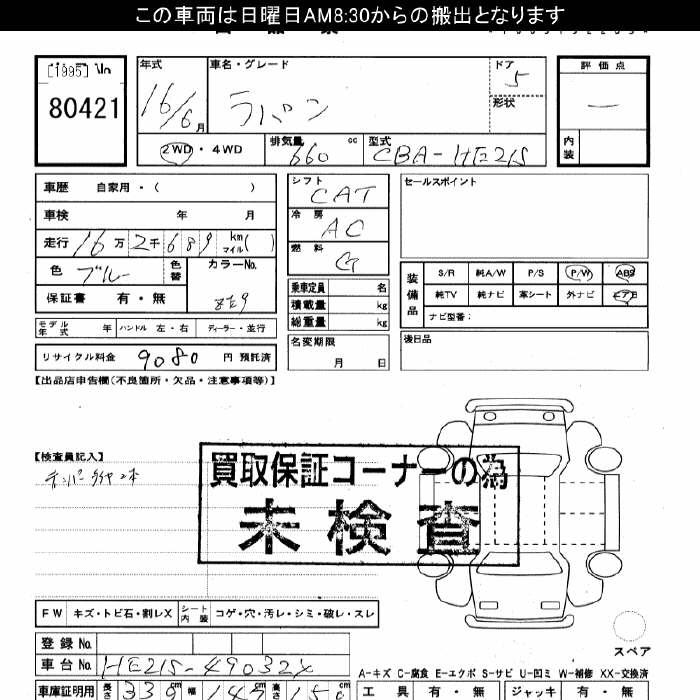 この車両は日曜日AM8:30からの搬出となります
[1995] No
80421
年式 16/6月
車名・グレード ラパン
ドア 5
形状
評価点 —
内装
2WD・4WD
排気量 660 cc
型式 CBA-HE21S
車歴 自家用・( )
車検 年 月
走行 16万2千689 km マイル( )
色 ブルー 色替
カラーNo.
保証書 有・無
シフト CAT
冷房 AC
燃料 G
乗車定員 名
積載量 kg
総重量 kg
名変期限 月 日
セールスポイント
装備品
S/R 純A/W P/S P/W ABS
純TV 純ナビ 革シート 外ナビ エアB
ナビ型番:
後日品
モデル年式 年 ハンドル 左・右 ディーラー・並行
リサイクル料金 9080 円 預託済
【出品店申告欄(不良箇所・欠品・注意事項等)】
【検査員記入】
テンパータイヤ2本
買取保証コーナーの為
未検査
FW キズ・トビ石・割レX シート内装 コゲ・穴・汚レ・シミ・破レ・スレ
スペア
登録No.
車台No. HE21S-
A-キズ C-腐食 E-エクボ S-サビ U-凹ミ W-補修 XX-交換済
車庫証明用 長さ 339 cm 幅 147 cm 高さ 150
工具 有・無 ジャッキ 有・無